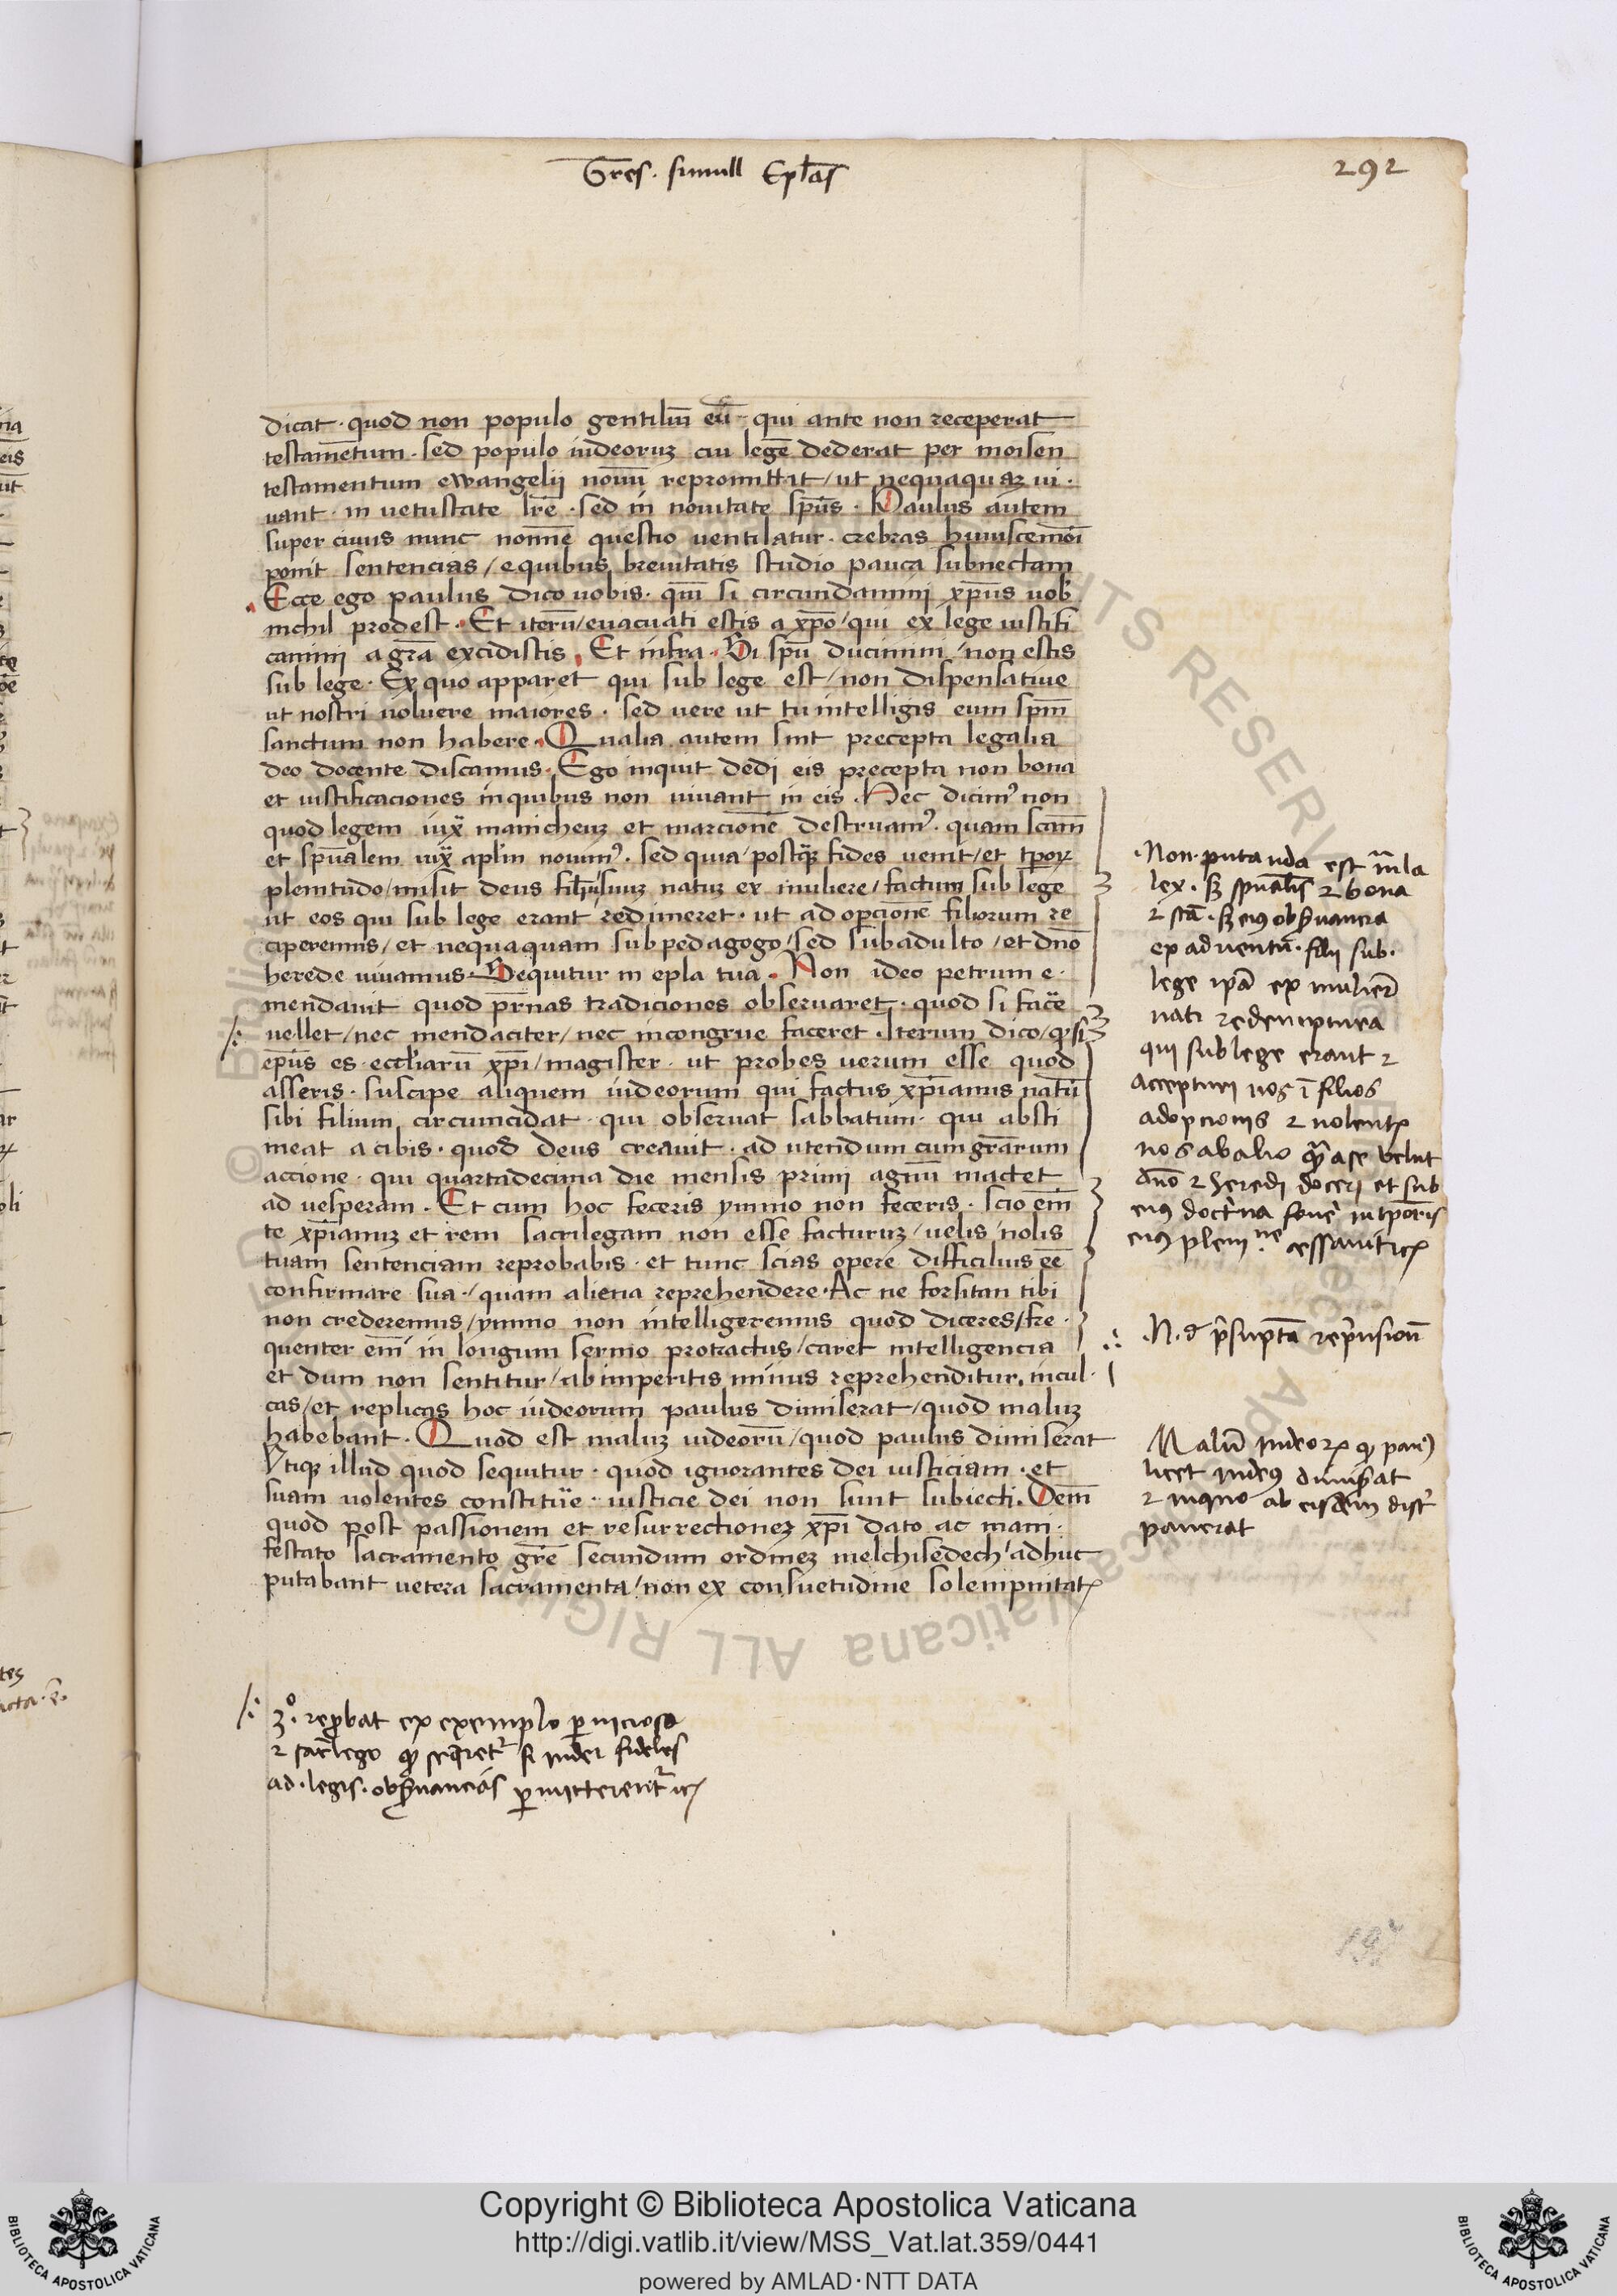 Gres. simull Epl̄as
292
dicat · quod non populo gentiliū eū · qui ante non receperat
testamētum · sed populo iudeoruȝ cui legē dederat per moisen
testamentum ewangelij nouū repromittit / ut nequaquaȝ ui·
uant · in uetustate lr̄e · sed in nouitate sp̄us · Paulus autem
super cuius nunc nomīe questio uentilatur · crebras huiuscemōi
ponit sentencias / e quibus breuitatis studio pauca subnectam
Ecce ego paulus dico uobis · qm̄ si circumdamini xp̄us uob̄
nichil prodest · Et iterū / euacuati estis a xp̄o / qui ex lege iustifi
camini a gr̄a excidistis · Et infra · Si sp̄u ducimini / non estis
sub lege · Ex quo apparet qui sub lege est / non dispensatiue
ut nostri uoluere maiores · sed uere ut tu intelligis eum sp̄m
sanctum non habere · Qualia autem sint precepta legalia
deo docente discamus · Ego inquit dedi eis precepta non bona
et iustificaciones in quibus non uiuant in eis · Hec dicim⁹ non
quod legem iux̄ manicheuȝ et marcionē destruam⁹ · quam scām
et spūalem iux̄ aplm̄ nouim⁹ · sed quia / postq̄ȝ fides uenit / et tp̄oꝝ
plenitudo / misit deus filiū suuȝ natuȝ ex muliere / factum sub lege
ut eos qui sub lege erant redimeret · ut adopcionē filiorum re
ciperemus / et nequaquam sub pedagogo / sed sub adulto / et dn̄o
herede uiuamus · Sequitur in epl̄a tua · Non ideo petrum e·
mendauit quod pr̄nas tradiciones obseruaret · quod si fac̄e
uellet / nec mendaciter / nec incongrue faceret · Iterum dico / q̄ si
ep̄us es · eccl̄iarū xp̄i / magister · ut probes uerum esse quod
asseris · suscipe aliquem iudeorum qui factus xp̄ianus natū
sibi filium circumcidat · qui obseruat sabbatum · qui absti
neat a cibis · quos deus creauit · ad utendum cum gr̄arum
accione · qui quartadecima die mensis primi agnū mactet
ad uesperam · Et cum hoc feceris ymmo non feceris · scio em̄
te xp̄ianuȝ et rem sacrilegam non esse facturuȝ / uelis / nolis
tuam sentenciam reprobabis · et tunc scias opere difficilius ēe
confirmare sua / quam aliena reprehendere · Ac ne forsitan tibi
non crederemus / ymmo non intelligeremus quod diceres / fre·
quenter em̄ in longum sermo protractus / caret intelligencia
et dum non sentitur / ab imperitis minus reprehenditur · incul·
cas / et replicas hoc iudeorum paulus dimiserat / quod maluȝ
habebant · Quod est maluȝ iudeorū / quod paulus dimiserat
Vtiqȝ illud quod sequitur · quod ignorantes dei iusticiam · et
suam uolentes constitūe · iusticie dei non sunt subiecti · Dem̄
quod post passionem et resurrectioneȝ xp̄i dato ac mani·
festato sacramento gr̄e secundum ordineȝ melchisedech / adhuc
putabant uetera sacramenta / non ex consuetudine solempnitatꝭ
Non putanda est mala
lex · sȝ spūalis ⁊ bona
⁊ sc̄a · sȝ eiꝰ obẜuancia
ex aduentu · filij sub·
lege ip̄a ex muliere
nati redempturа
qui sub lege erant ⁊
accepturi nos ī filios
adopcionis ⁊ nolentꝭ
nos ab alio q̄ a se velut
dn̄o ⁊ heredi doceri et sub
eiꝰ doctrina
N. d̄ p̄suptā rep̄nsionū
Malū iudeoꝝ
licet
⁊ inquo ab eisdem
3º · rep̄bat ex exemplo p̄niciosa
⁊ sac̄lego q̄ seq̄ret² si iudei fideles
ad · legis · obẜuancias p̄mitterent²
Copyright © Biblioteca Apostolica Vaticana
http://digi.vatlib.it/view/MSS_Vat.lat.359/0441
powered by AMLAD·NTT DATA
BIBLIOTECA APOSTOLICA VATICANA
BIBLIOTECA APOSTOLICA VATICANA